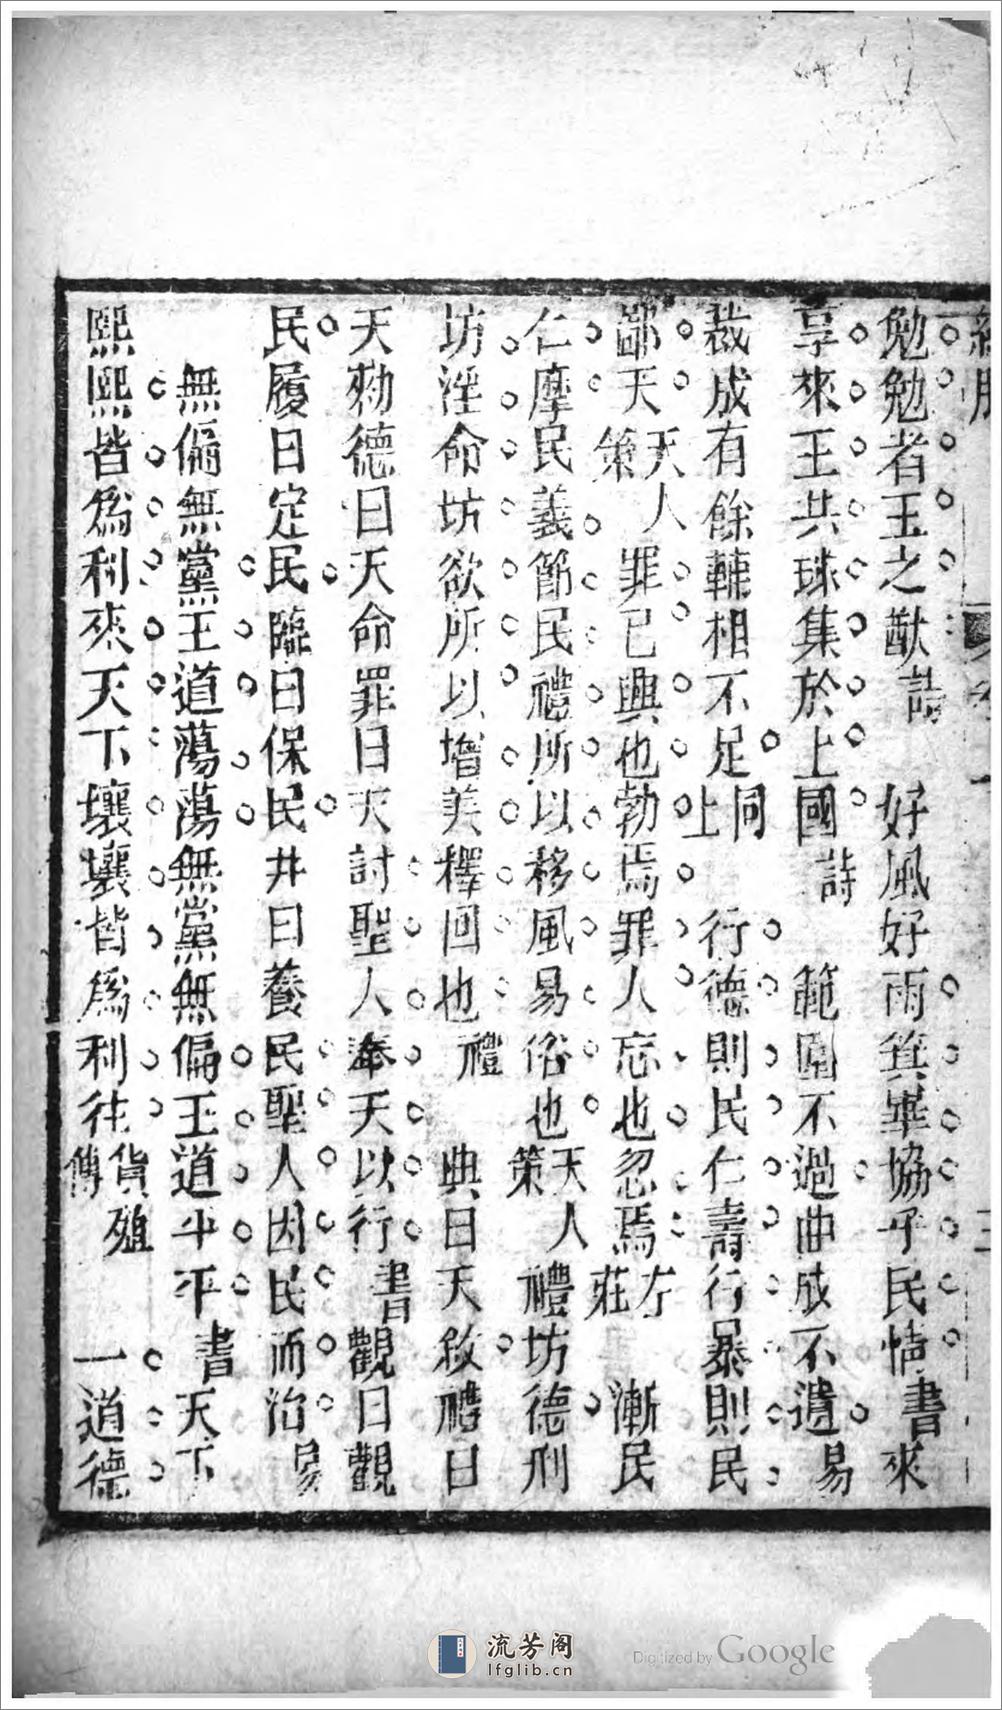 勉勉者王之猷詩 好風好雨箕畢協乎民情書 來
享來王共球集於上國詩 範圍不過曲成不遺易
裁成有餘輔相不足同上 行德則民仁壽行暴則民
鄙夭天人策 罪己興也勃焉罪人忘也忽焉左莊 漸民
仁摩民義節民禮所以移風易俗也天人策 禮坊德刑
坊淫命坊欲所以增美釋回也禮 典曰天敘禮曰
天勑德曰天命罪曰天討聖人奉天以行書 觀曰觀
民履曰定民臨曰保民井曰養民聖人因民而治易
無偏無黨王道蕩蕩無黨無偏王道平平書 天下
熙熙皆爲利來天下壤壤皆爲利往貨殖傳 一道德
流芳阁
lfglib.cn
Digitized by Google